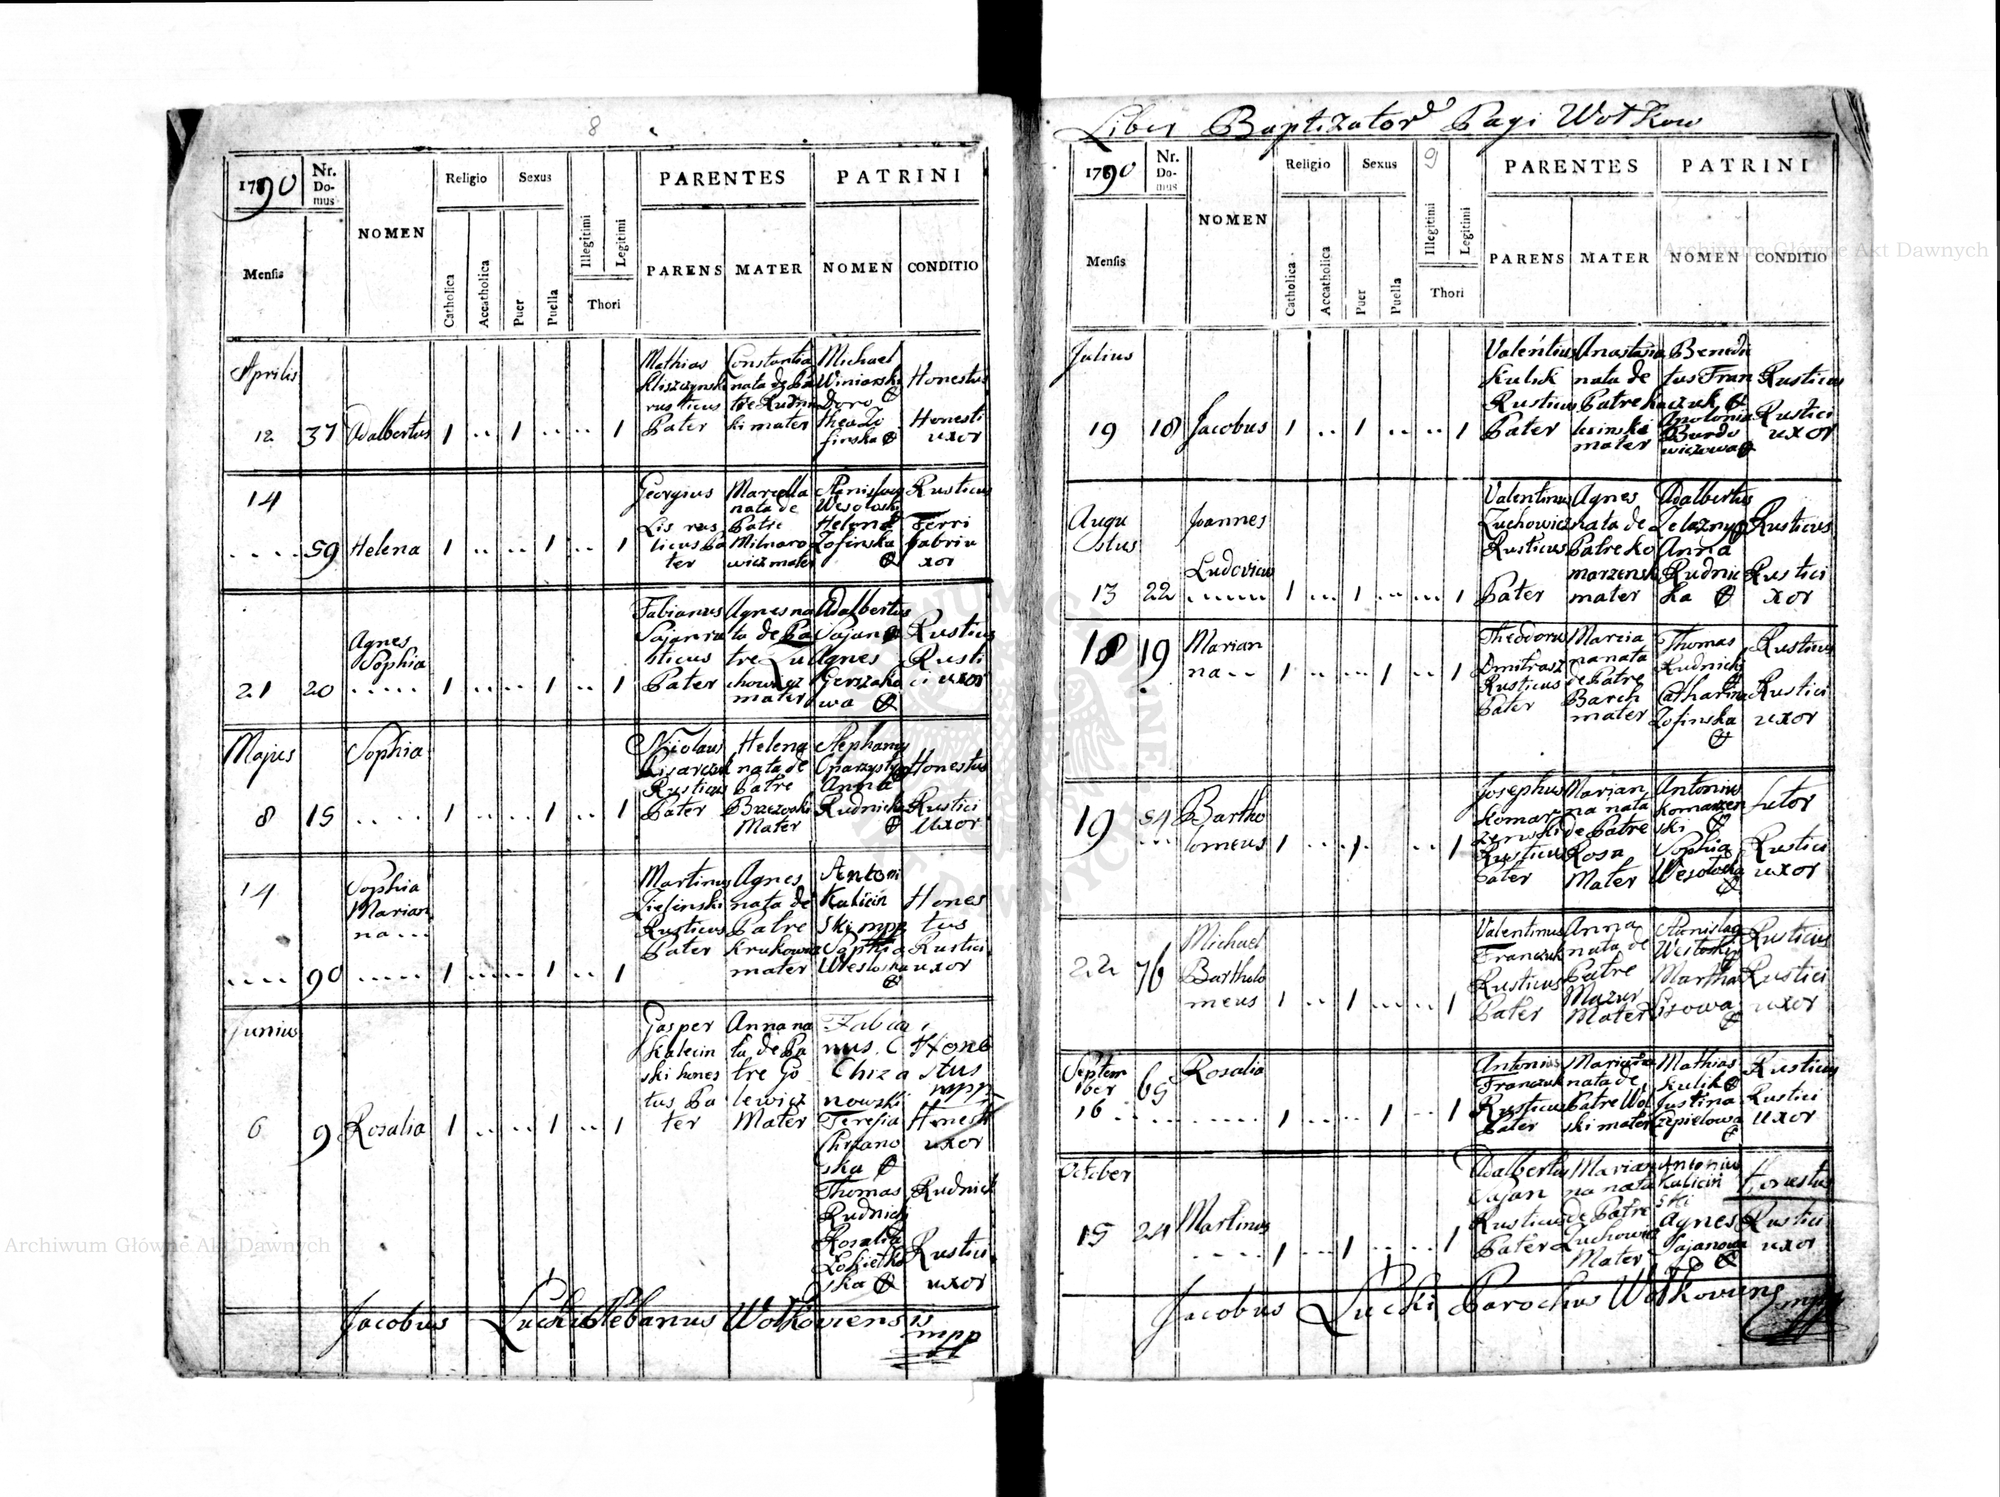 8
1790
Nr. Domus
NOMEN
Religio
Sexus
PARENTES
PATRINI
Mensis
Catholica
Accatholica
Puer
Puella
Illegitimi
Legitimi
Thori
PARENS
MATER
NOMEN
CONDITIO
Aprilis
12 37 Adalbertus 1 .. 1 .. .. 1
Mathias
rusticus
Pater
Constantia
nata de Pa
tre Rudni
ski mater
Michael
Winiarski
Doro
thea Zo
finska
Honestus
Honesti
uxor
14
59 Helena 1 .. .. 1 .. 1
Georgius
Lis rus
ticus Pa
ter
Marcella
nata de
Patre
Milnaro
wicz mater
Stanislaus
Wesołoski
Helena
Zofinska
Rusticus
Ferri
Fabri u
xor
Agnes
Sophia
21 20 ..... 1 .. .. 1 .. 1
Fabianus
Sajan ru
sticus
Pater
Agnes na
ta de Pa
tre Zu
chowicz
mater
Adalbertus
Sajan
Agnes
wa
Rusticus
Rusti
ci uxor
Majus
Sophia
8 15 .... 1 .. .. 1 .. 1
Nicolaus
Rusticus
Pater
Helena
nata de
Patre
Brzezoski
Mater
Stephanus
Anna
Rudnicka
Honestus
Rustici
Uxor
14
Sophia
Marian
na ...
.... 90 ..... 1 .. .. 1 .. 1
Martinus
Zielinski
Rusticus
Pater
Agnes
nata de
Patre
mater
Antoni
Kulicin
ski mpp
Sophia
Wesloska
Hones
tus
Rustici
uxor
Junius
6 9 Rosalia 1 .. .. 1 .. 1
Gasper
Kalicin
ski hones
tus Pa
ter
Anna na
ta de Pa
tre Go
lewicz
Mater
Fabia
nus C
Chiza
nowski
Teresia
Chizano
ska
Thomas
Rudnicki
Rosalia
ska
Hone
stus
mpp
Honesti
uxor
Rudnicki
Rustici
uxor
Jacobus Łucki Plebanus Wolkoviensis
mpp
Liber Baptizator Pagi Wolkow
9
1790
Nr. Domus
NOMEN
Religio
Sexus
PARENTES
PATRINI
Mensis
Catholica
Accatholica
Puer
Puella
Illegitimi
Legitimi
Thori
PARENS
MATER
NOMEN
CONDITIO
Julius
19 18 Jacobus 1 .. 1 .. .. 1
Valentius
Kulik
Rusticus
Pater
Anastasia
nata de
Patre
mater
Benedic
tus Fran
czuk
Apolonia
Burdo
wiczowa
Rusticus
Rustici
uxor
Augu
stus
Joannes
Ludovicus
13 22 ...... 1 .. 1 ... .. 1
Valentinus
Zuchowicz
Rusticus
Pater
Agnes
nata de
Patre Ko
marzenski
mater
Adalbertus
Zelazny
Anna
Rudnic
ka
Rusticus
Rustici
xor
18 19 Marian
na .. 1 .. .. 1 .. 1
Theodorus
Dmitrasz
Rusticus
Pater
Marcia
na nata
de Patre
Barch
mater
Thomas
Rudnicki
Catharina
Zofinska
Rusticus
Rustici
uxor
19 54 Bartho
lomeus 1 .. 1 .. .. 1
Josephus
Komar
zenski
Rusticus
Pater
Marian
na nata
de Patre
Rosa
Mater
Antonius
Komarzen
ski
Sophia
Wesołoska
Sutor
Rustici
uxor
22 76 Michael
Bartholo
meus 1 .. 1 ... .. 1
Valentinus
Franczuk
Rusticus
Pater
Anna
nata de
Patre
Mazur
Mater
Stanislaus
Martha
Lisowa
Rusticus
Rustici
uxor
Septem
ber
16 65 Rosalia
1 .. .. 1 .. 1
Antonius
Franczuk
Rusticus
Pater
nata de
Patre Wol
ski mater
Mathias
Kulik
Justina
Czepielowa
Rusticus
Rustici
uxor
October
15 24 Martinus
1 .. 1 .. .. 1
Adalbertus
Sajan
Rusticus
Pater
Marian
na nata
de Patre
Zuchowicz
Mater
Antonius
Kulicin
ski
Agnes
Sajanowa
Honestus
Rustici
uxor
Jacobus Łucki Parochus Wolkoviens
mpp
Archiwum Główne Akt Dawnych
Archiwum Główne Akt Dawnych